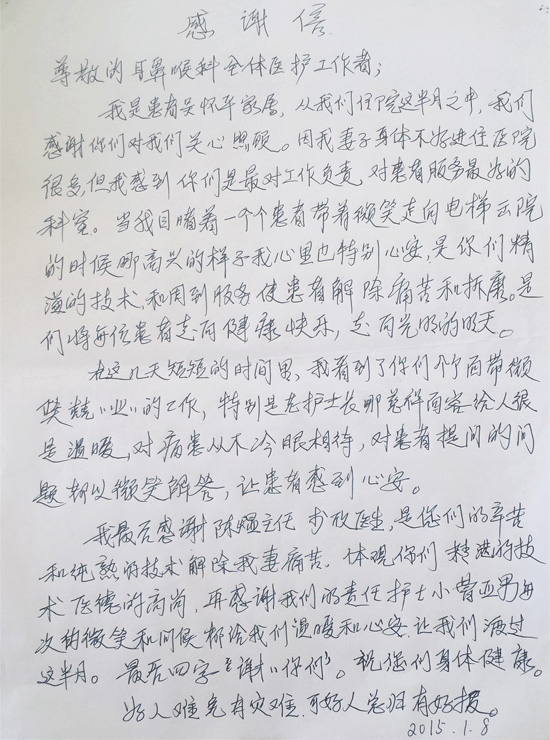 感谢信
尊敬的耳鼻喉科全体医护工作者;
我是患者吴怀平家属,从我们住院这半月之中,我们
感谢你们对我们关心照顾。因我妻子身体不好进住医院
很多,但我感到你们是最对工作负责,对患者服务最好的
科室。当我目睹着一个个患者带着微笑走向电梯出院
的时候哪高兴的样子我心里也特别心安,是你们精
湛的技术,和周到服务使患者解除痛苦和折磨。是
们将每位患者走向健康快乐,走向光明的明天。
在这几天短短的时间里,我看到了你们个个面带微
笑兢"业"的工作,特别是老护士长哪慈祥面容给人很
是温暖,对病患从不冷眼相待,对患者提问的问
题都以微笑解答,让患者感到心安。
我最后感谢陈主任 医生,是您们的辛苦
和纯熟的技术解除我妻痛苦。体现你们精湛的技
术医德的高尚,再感谢我们的责任护士小曹亚男每
次的微笑和问候都给我们温暖和心安,让我们渡过
这半月。最后四字"谢谢你们"。祝您们身体健康。
好人难免有灾难,可好人总归有好报。
2015.1.8